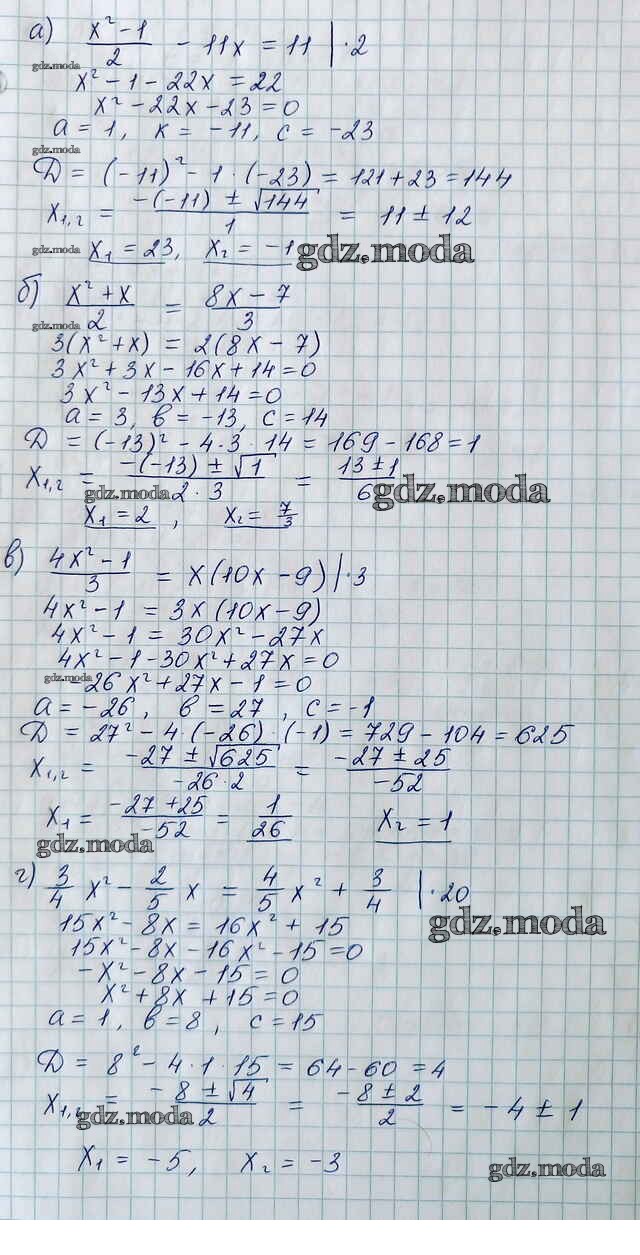 а) (x² - 1)/2 - 11x = 11 | ·2
gdz.moda
x² - 1 - 22x = 22
x² - 22x - 23 = 0
a = 1, к = -11, c = -23
gdz.moda
D = (-11)² - 1 · (-23) = 121 + 23 = 144
x₁,₂ = (-(-11) ± √144)/1 = 11 ± 12
gdz.moda
x₁ = 23, x₂ = -1
gdz.moda
б) (x² + x)/2 = (8x - 7)/3
gdz.moda
3(x² + x) = 2(8x - 7)
3x² + 3x - 16x + 14 = 0
3x² - 13x + 14 = 0
a = 3, в = -13, c = 14
D = (-13)² - 4 · 3 · 14 = 169 - 168 = 1
x₁,₂ = (-(-13) ± √1)/(2 · 3) = (13 ± 1)/6
gdz.moda
gdz.moda
x₁ = 2, x₂ = 7/3
в) (4x² - 1)/3 = x(10x - 9) | ·3
4x² - 1 = 3x(10x - 9)
4x² - 1 = 30x² - 27x
4x² - 1 - 30x² + 27x = 0
gdz.moda
-26x² + 27x - 1 = 0
a = -26, в = 27, c = -1
D = 27² - 4 · (-26) · (-1) = 729 - 104 = 625
x₁,₂ = (-27 ± √625)/(-26 · 2) = (-27 ± 25)/(-52)
x₁ = (-27 + 25)/(-52) = 1/26 x₂ = 1
gdz.moda
г) 3/4 x² - 2/5 x = 4/5 x² + 3/4 | ·20
gdz.moda
15x² - 8x = 16x² + 15
15x² - 8x - 16x² - 15 = 0
-x² - 8x - 15 = 0
x² + 8x + 15 = 0
a = 1, в = 8, c = 15
D = 8² - 4 · 1 · 15 = 64 - 60 = 4
x₁,₂ = (-8 ± √4)/2 = (-8 ± 2)/2 = -4 ± 1
gdz.moda
x₁ = -5, x₂ = -3
gdz.moda